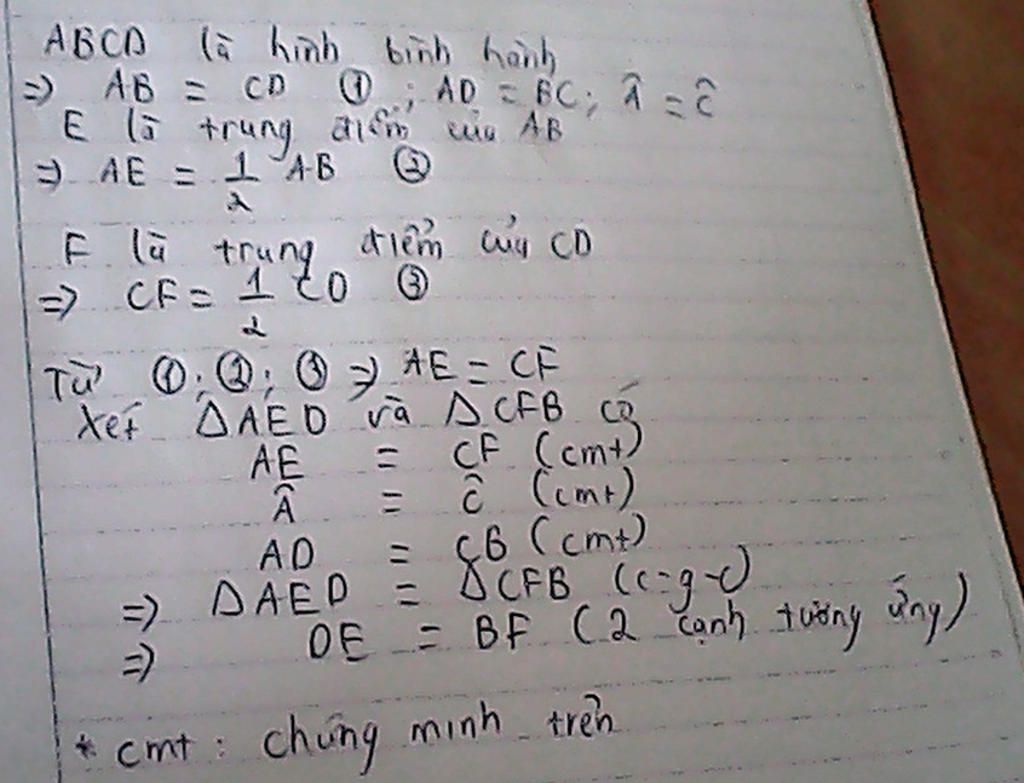 ABCD là hình bình hành
=> AB = CD ① ; AD = BC ; Â = Ĉ
E là trung điểm của AB
=> AE = 1/2 AB ②
F là trung điểm của CD
=> CF = 1/2 CD ③
Từ ① ; ② ; ③ => AE = CF
Xét ΔAED và ΔCFB có
AE = CF (cmt)
Â = Ĉ (cmt)
AD = CB (cmt)
=> ΔAED = ΔCFB (c-g-c)
=> DE = BF (2 cạnh tương ứng)
* cmt : chứng minh trên